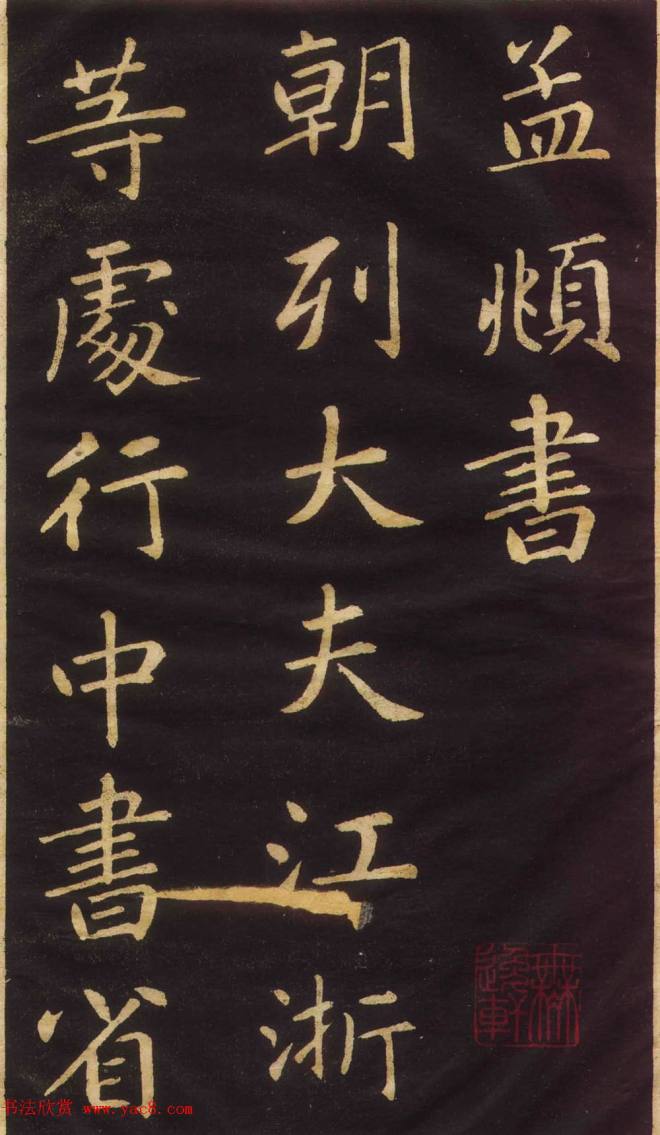 孟頫書
朝列大夫江浙
等處行中書省
书法欣赏 www.yac8.com